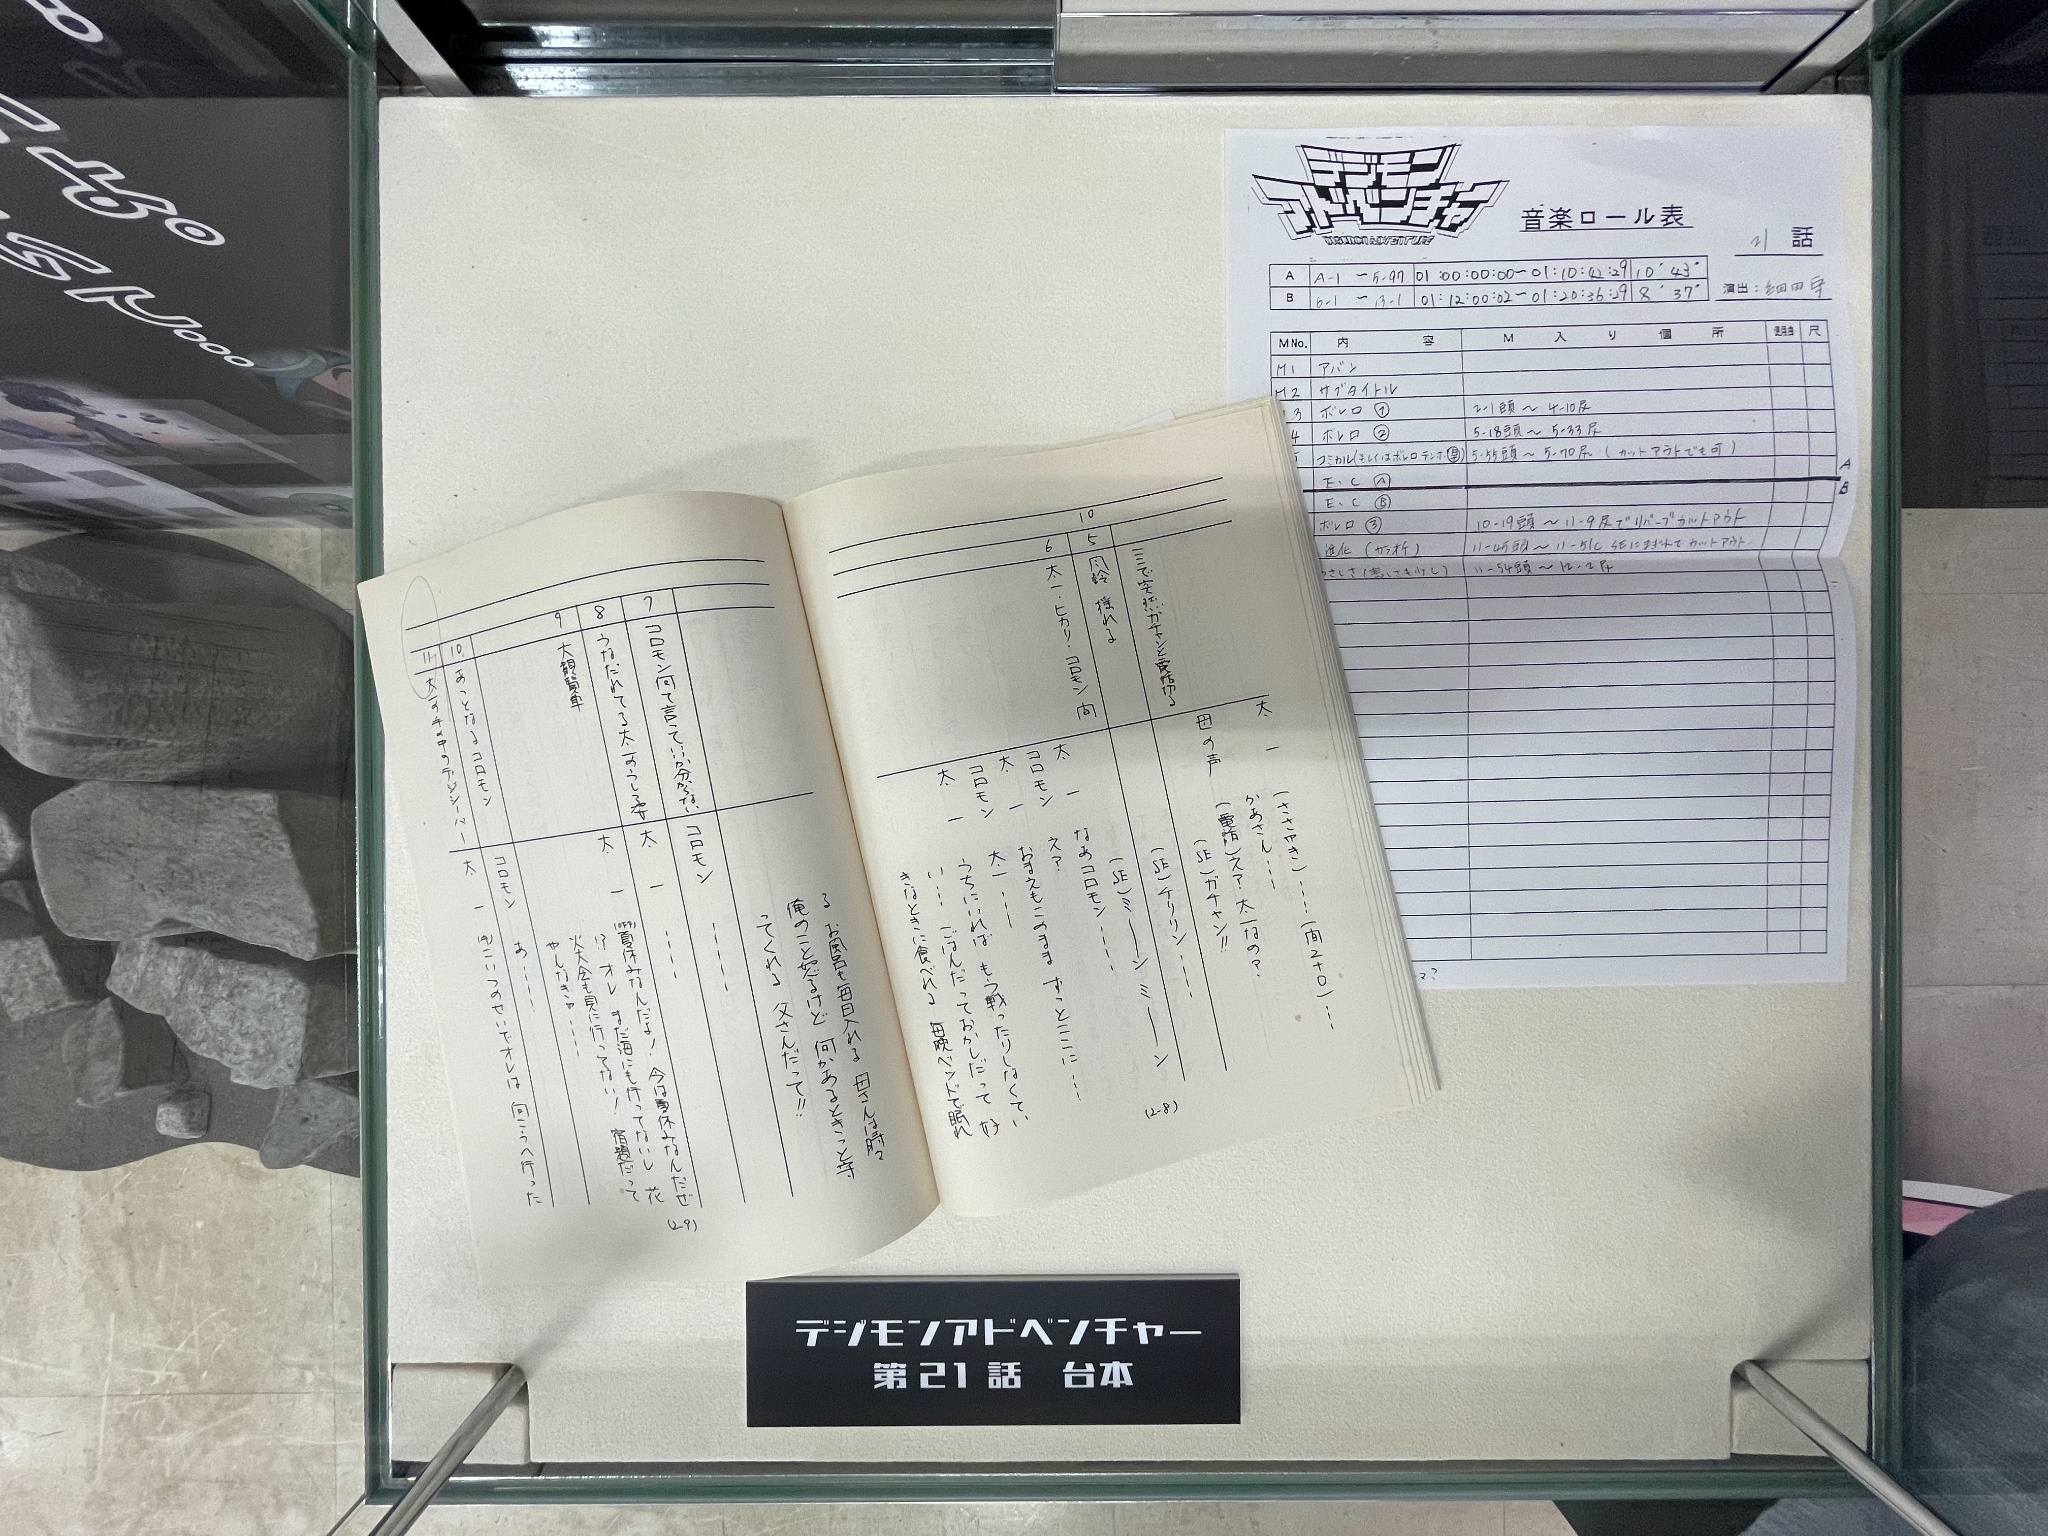 デジモン
アドベンチャー
DIGIMON ADVENTURE
音楽ロール表
21 話
A A-1 〜 5-97 01:00:00:00〜01:10:42:29 10' 43"
B 6-1 〜 13-1 01:12:00:02〜01:20:36:29 8' 37"
演出：細田守
M No. 内 容 M 入 り 個 所 尺
M1 アバン
M2 サブタイトル
3 ボレロ ① 2-1頭 〜 4-10尻
4 ボレロ ② 5-18頭 〜 5-33尻
コミカル(もしくはボレロテンポ 5-55頭 〜 5-70尻 (カットアウトでも可)
E.C Ⓐ
A
B
E.C Ⓑ
ボレロ ③ 10-19頭 〜 11-9尻でリバーブカットアウト
進化 (カラオケ) 11-45頭 〜 カットアウト
11-54頭 〜 12-2尻
10
ここで突然ガチャンと電話切る
5 風鈴 揺れる
6 太一・ヒカリ・コロモン
太一 (ささやき)……(間2+0)……
かあさん……
母の声 (電話)え? 太一なの?
(SE)ガチャン!!
(SE)チリリン……
(SE)ミーーンミーーン
太一 なあコロモン……
コロモン え?
太一 おまえもこのまま ずっとここに……
コロモン 太一……
太一 うちにいれば もう戦ったりしなくてい
い… ごはんだっておかしだって 好
きなときに食べれる 毎晩ベッドで眠れ
(2-8)
る お風呂も毎日入れる 母さんは時々
俺のこと怒るけど 何かあるときっと守
ってくれる 父さんだって!!
7 コロモン何て言っていいか分からない
コロモン ……
8 うなだれてる太一のうしろ姿
太一 ……
9 大観覧車
太一 夏休みなんだよ! 今は夏休みなんだぜ
!? オレ まだ海にも行ってないし 花
火大会も見に行ってない! 宿題だって
やんなきゃ……
10 あっとなるコロモン
コロモン あ……
11 太一の手の中のデジバイス
太一 こいつのせいでオレは 向こうへ行った
(2-9)
デジモンアドベンチャー
第21話 台本